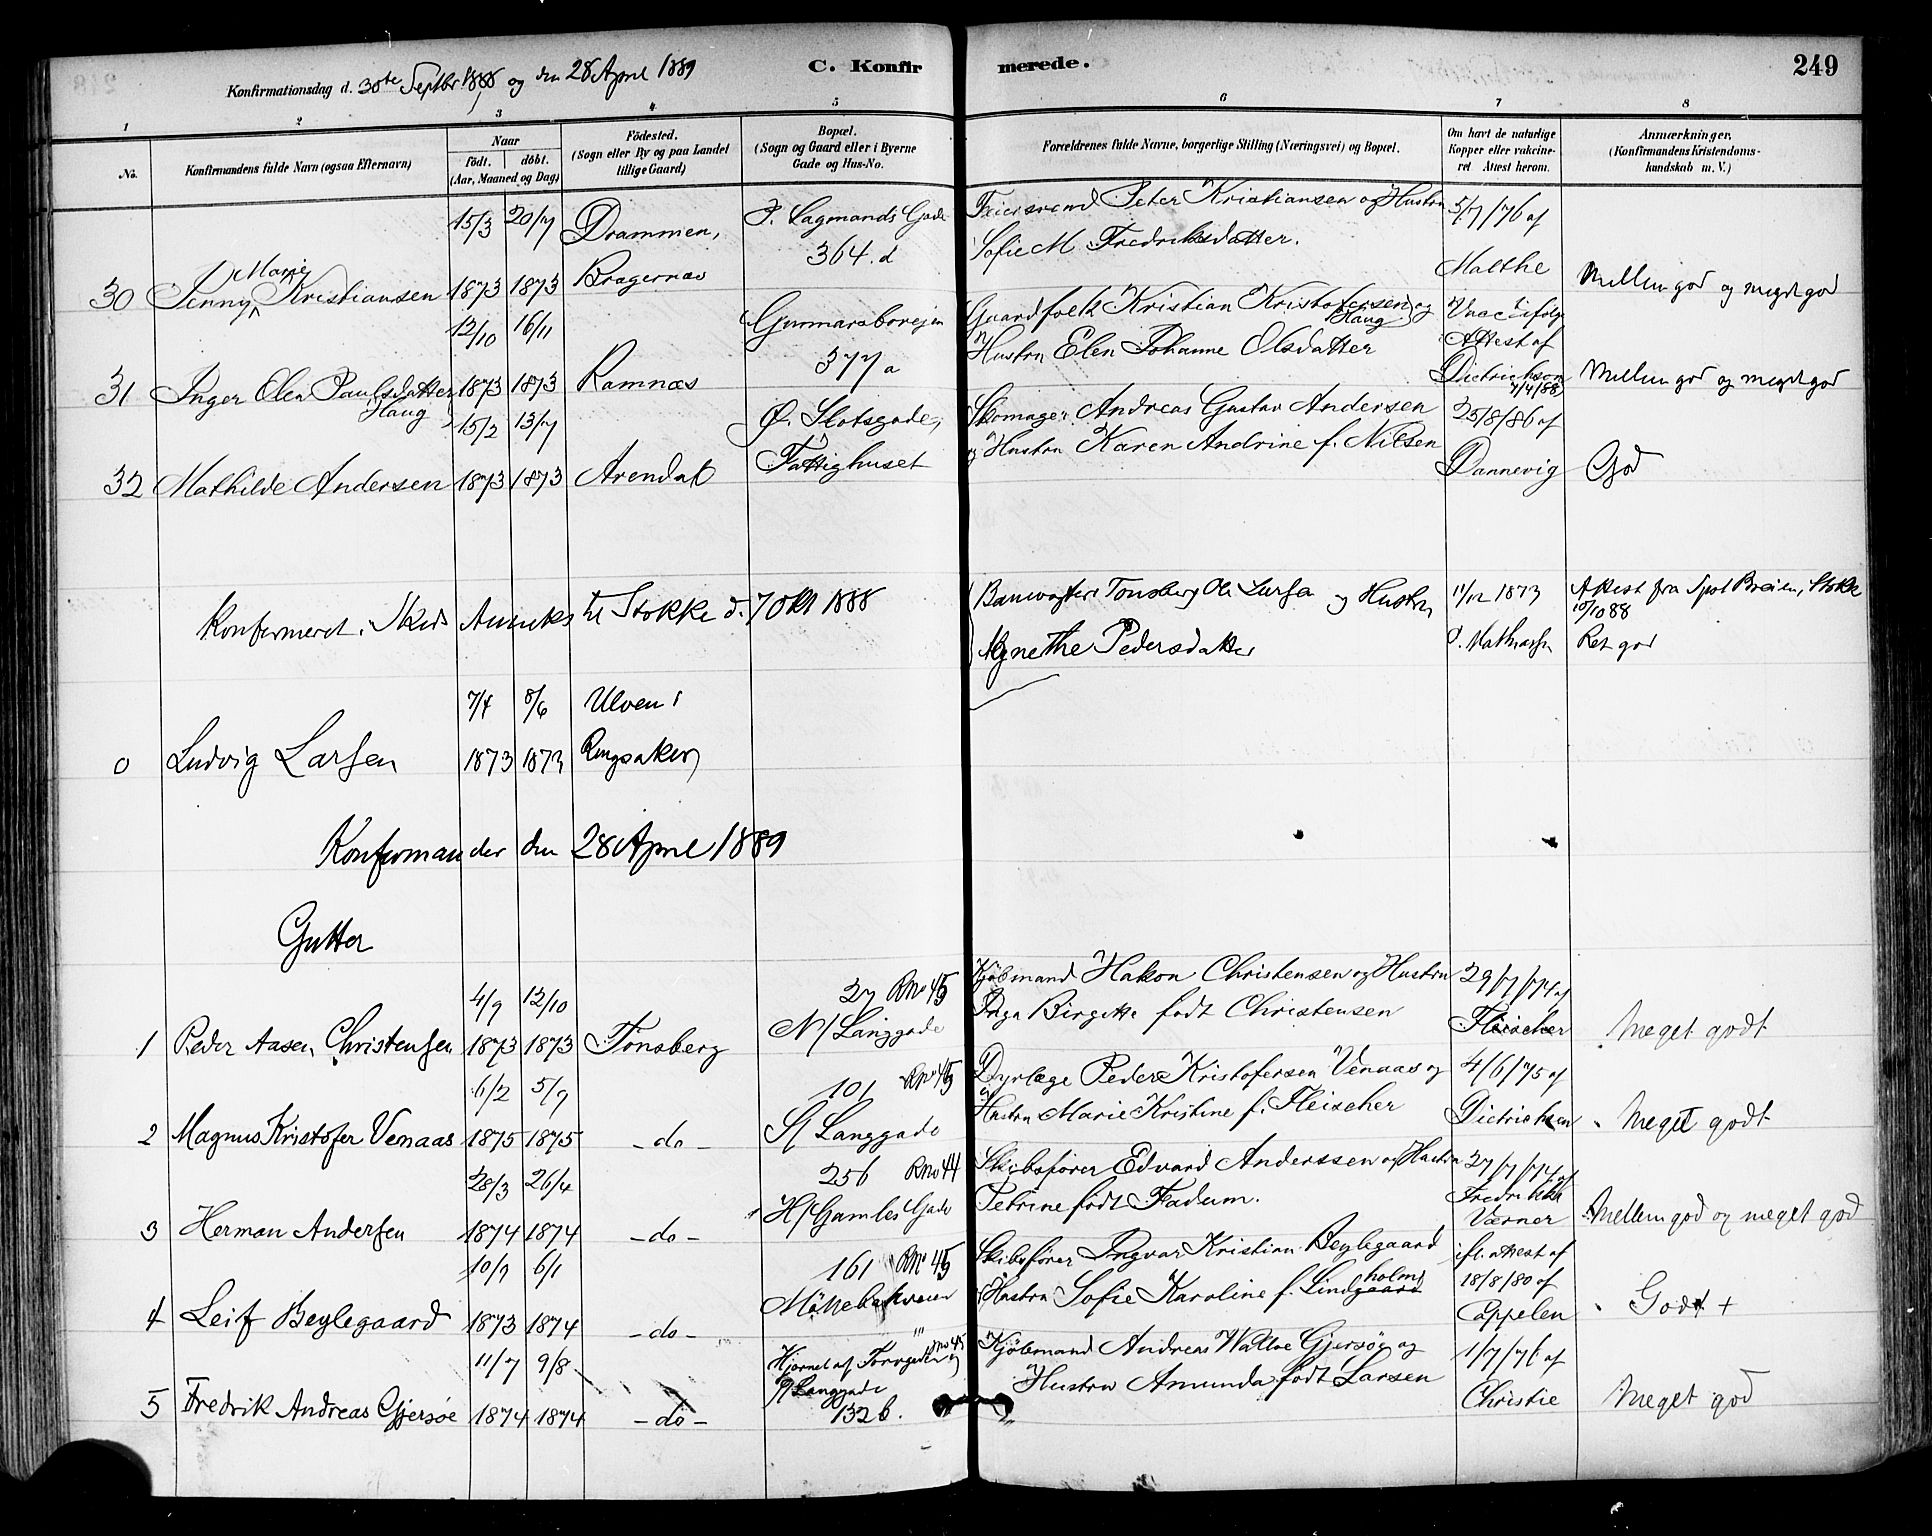 Konfirmationsdag d. 30te Septbr 1888 og den 28 April 1889
C. Konfirmerede.
249
1 2 3 4 5 6 7 8
No.
Konfirmandens fulde Navn (ogsaa Efternavn)
Naar
født. døbt.
(Aar, Maaned og Dag)
Fødested.
(Sogn eller By og paa Landet
tillige Gaard)
Bopæl.
(Sogn og Gaard eller i Byerne
Gade og Hus-No.
Forældrenes fulde Navne, borgerlige Stilling (Næringsvei) og Bopæl.
Om havt de naturlige
Kopper eller vakcine-
ret Attest herom.
Anmærkninger.
(Konfirmandens Kristendoms-
kundskab m. V.)
30 Jenny Marie Kristiansen
15/3 1873
20/7 1873
Drammen,
Bragernæs
P. Lagmands Gade
364. d
Feiersvend Peter Kristiansen og Hustru
Sofie M. Fredriksdatter.
5/7/76 af
Malthe
Mellem god og meget god
31 Inger Olea Paulsdatter
Haug
12/10 1873
16/11 1873
Ramnæs
Gunnarsbovejen
377 a
Gaardfolk Kristian Kristofersen og
Haug
Hustru Elen Johanne Olsdatter
Vacc ifølge
Attest af
Dietrichson
7/4/88
Mellem god og meget god
32 Mathilde Andersen
15/2 1873
13/7 1873
Arendal
Ø. Slotsgade,
Fattighuset
Skomager Andreas Gustav Andersen
og Hustru Karen Andrine f. Nilsen
25/8/86 af
Dannevig
God
Konfirmeret i Skee Anneks til Stokke d. 7 Okt 1888
Banevogter Tønsberg Ole Larsen og Hustru
Agnethe Pedersdatter
11/12 1873
Attest fra Spst Breien, Stokke
10/10 88
Ret god
0 Ludvig Larsen
7/4 1873
8/6 1873
Ulven i
Ringsaker
Konfirmander den 28 April 1889
Gutter
1 Peder Aasen Christensen
4/9 1873
12/10 1873
Tønsberg
27 RNo 45
N/ Langgade
Kjøbmand Hakon Christensen og Hustru
Inga Birgitte født Christensen
29/7/74 af
Fleischer
Meget godt
2 Magnus Kristofer Venaas
6/2 1875
5/9 1875
- do -
101 RNo 45
S/ Langgade
Dyrlæge Peder Kristofersen Venaas og
Hustru Marie Kristine f. Fleischer
4/6/75 af
Dietrichsen
Meget godt
3 Herman Andersen
28/3 1874
26/4 1874
- do -
256 RNo 44
H/ Gamles Gade
Skibsfører Edvard Anderssen og Hustru
Petrine født Fadum.
27/7/74 af
Fredrikke
Værner
Mellem god og meget god
4 Leif Beylegaard
10/9 1873
6/1 1874
- do -
161 RNo 45
Møllebakveien
Skibsfører Ingvar Kristian Beylegaard
Hustru Sofie Karoline f. Lindgaard holm
ifl. attest af
18/8/80 af
Cappelen
Godt +
5 Fredrik Andreas Gjersøe
11/7 1874
9/8 1874
- do -
Hjørnet af Torvgaden og RNo 45
Langgade
132 b.
Kjøbmand Andreas Wattne Gjersøe og
Hustru Amunda født Larsen
1/7/76 af
Christie
Meget god